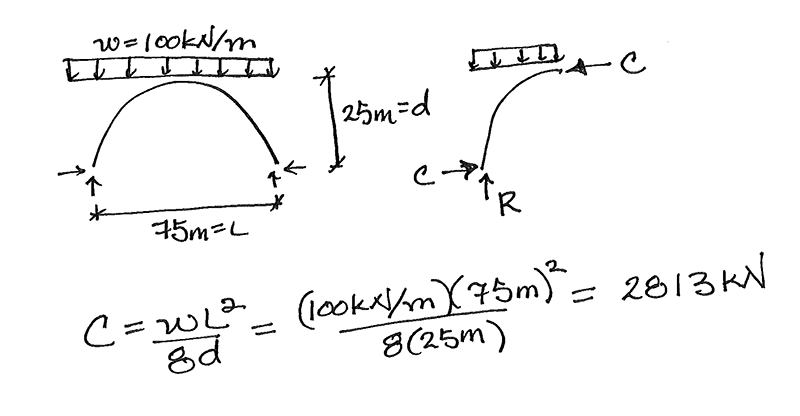 w=100kN/m
C
25m=d
C
R
75m=L
C = wL²/8d = (100kN/m)(75m)²/8(25m) = 2813kN